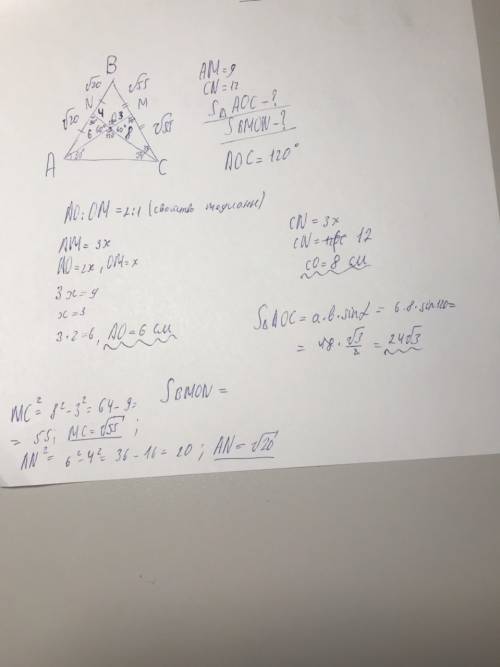 B
√20
√55
N
4
O
3
M
√20
6
8
√55
A
C
AM = 9
CN = 12
S△ AOC - ?
S BMON - ?
AOC = 120°
AO : OM = 2:1 (свойство медианы)
AM = 3x
AO = 2x, OM = x
3x = 9
x = 3
3 · 2 = 6, AO = 6 см
CN = 3x
CN = 12
CO = 8 см
S△ AOC = a · b · sin α = 6 · 8 · sin 120 =
= 48 · √3/2 = 24√3
S BMON =
MC² = 8² - 3² = 64 - 9 =
= 55; MC = √55 ;
AN² = 6² - 4² = 36 - 16 = 20 ; AN = √20